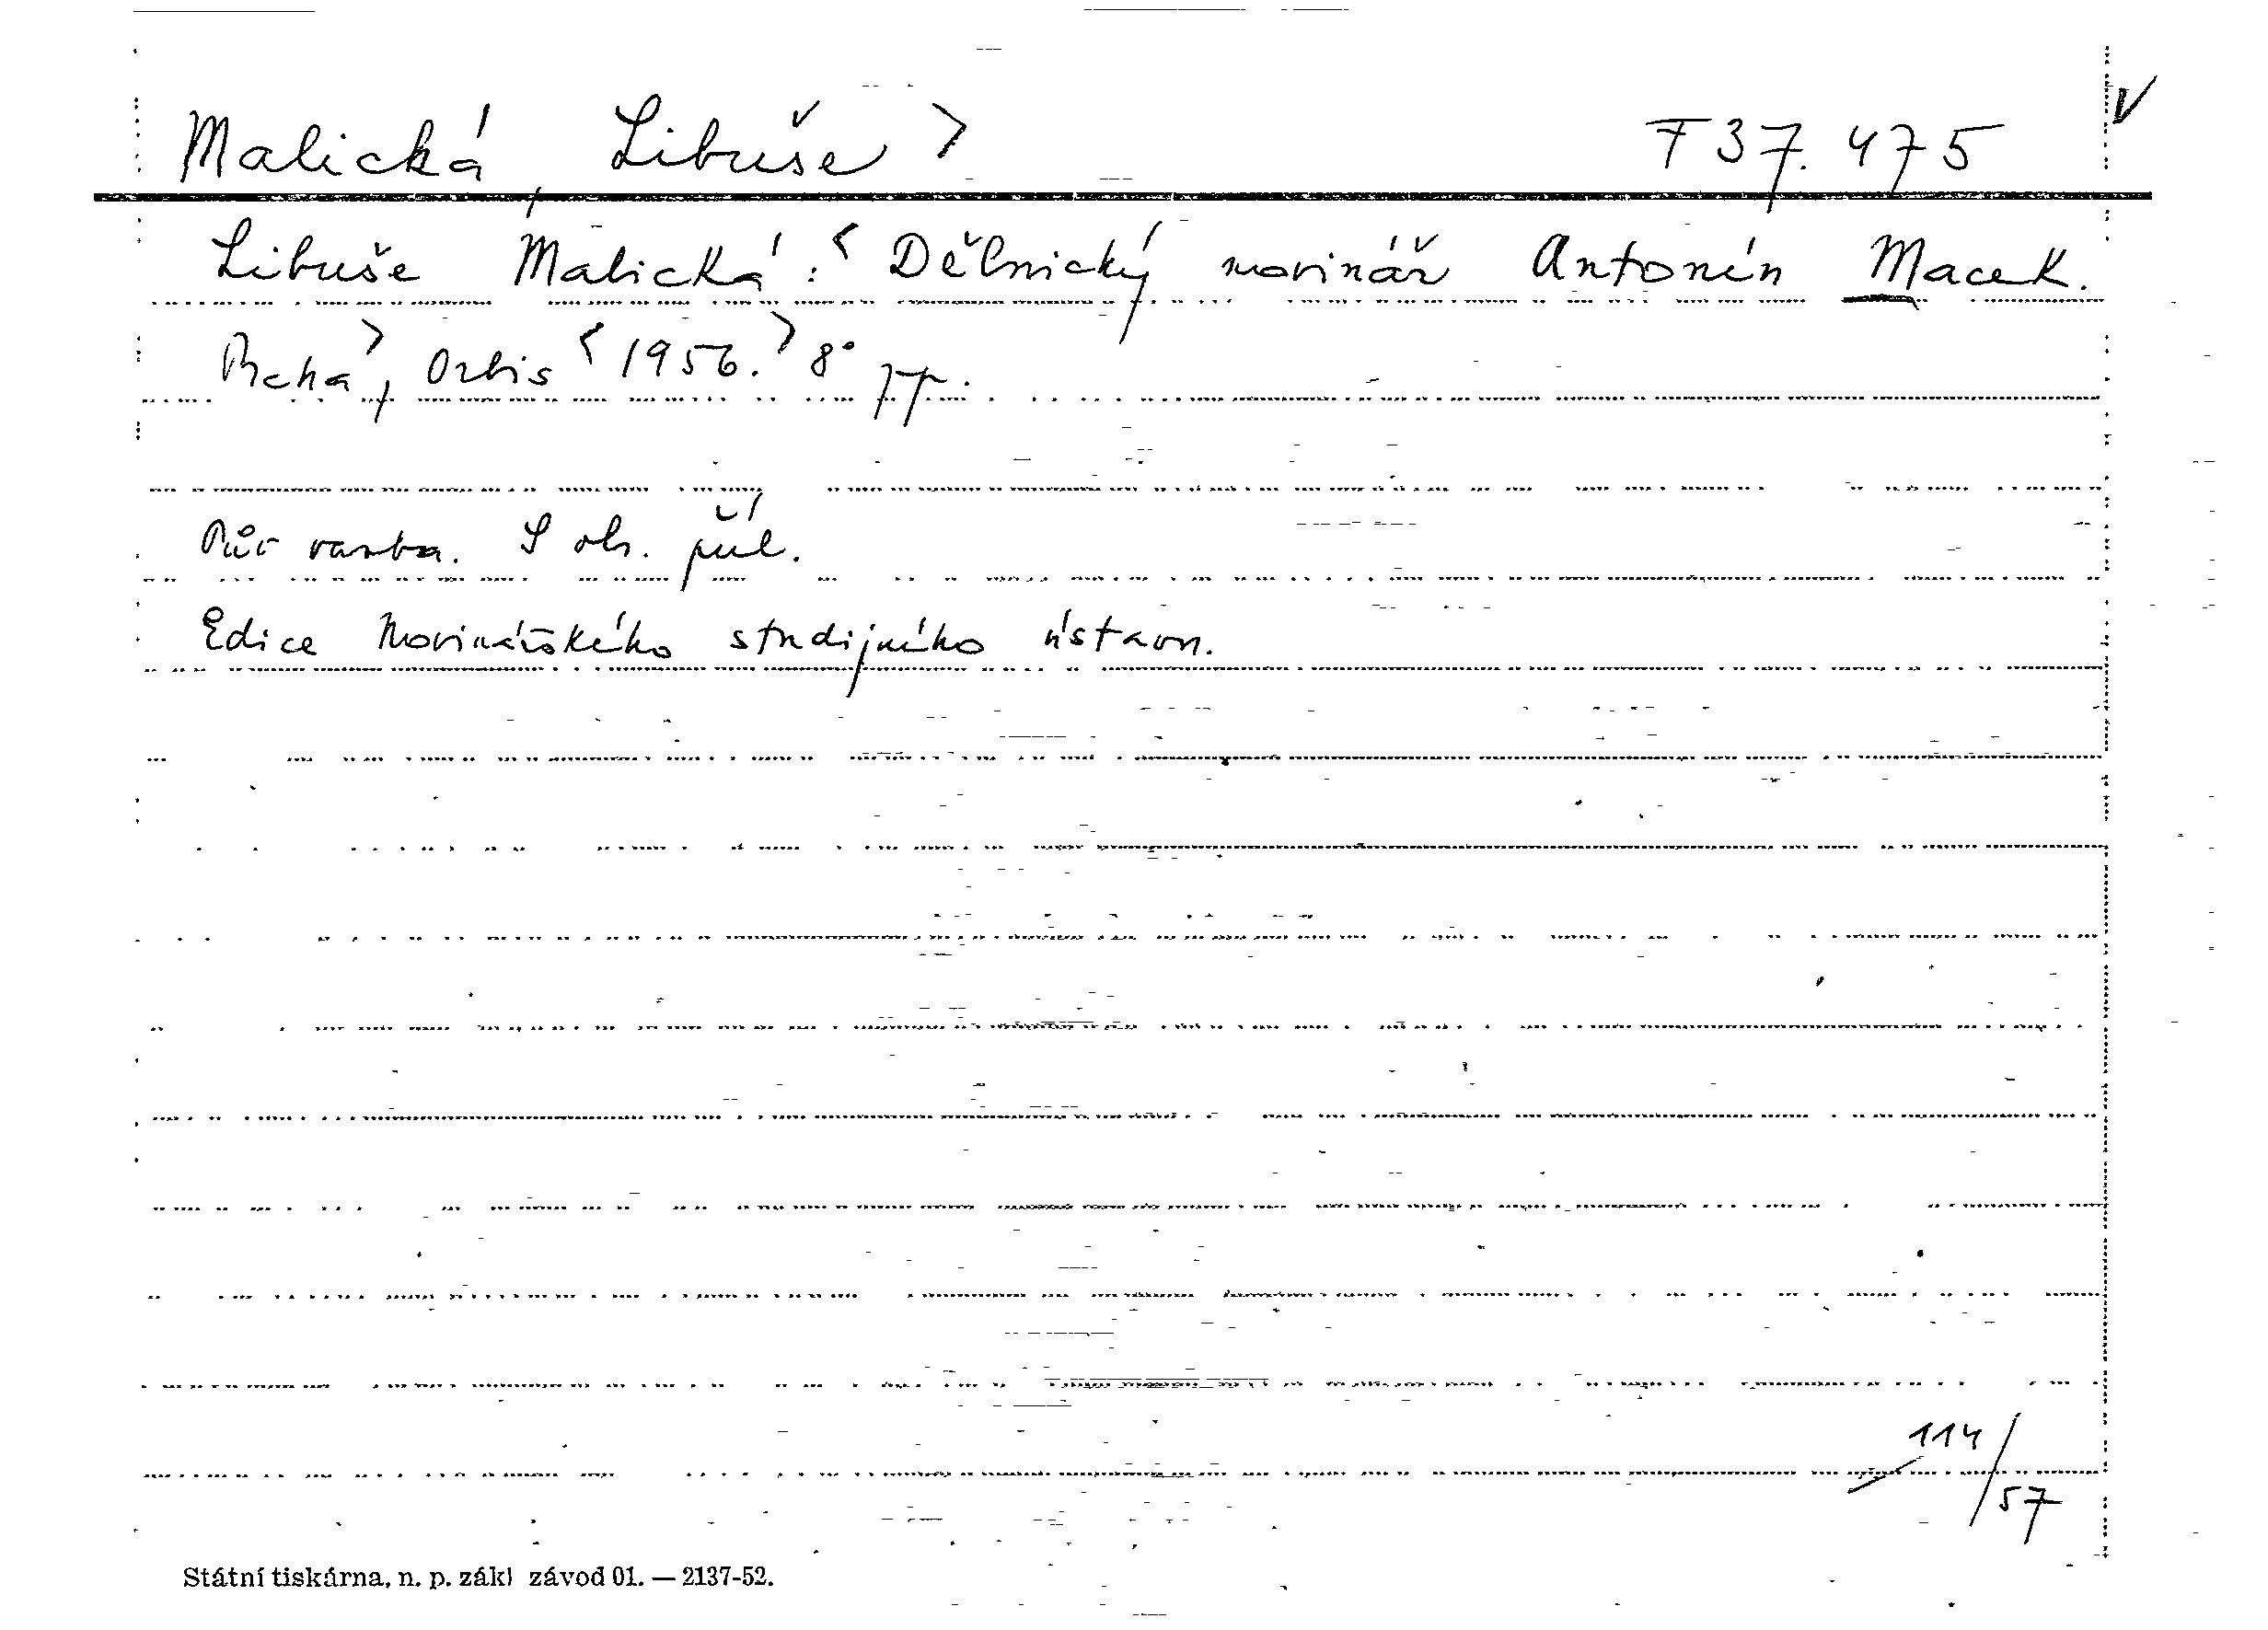 Malická, Libuše > F 37.475 V
Libuše Malická: < Dělnický novinář Antonín Macek.
Praha >, Orbis < 1956. > 8°
Pův vazba. S obr. příl.
Edice Novinářského studijního ústavu.
114/57
Státní tiskárna, n. p. zákl závod 01. — 2137-52.